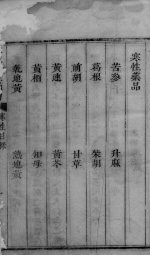 寒性藥品
苦參　升麻
葛根　柴胡
前胡　甘草
黃連　黃芩
黃柏　知母
乾地黃　熟地黃